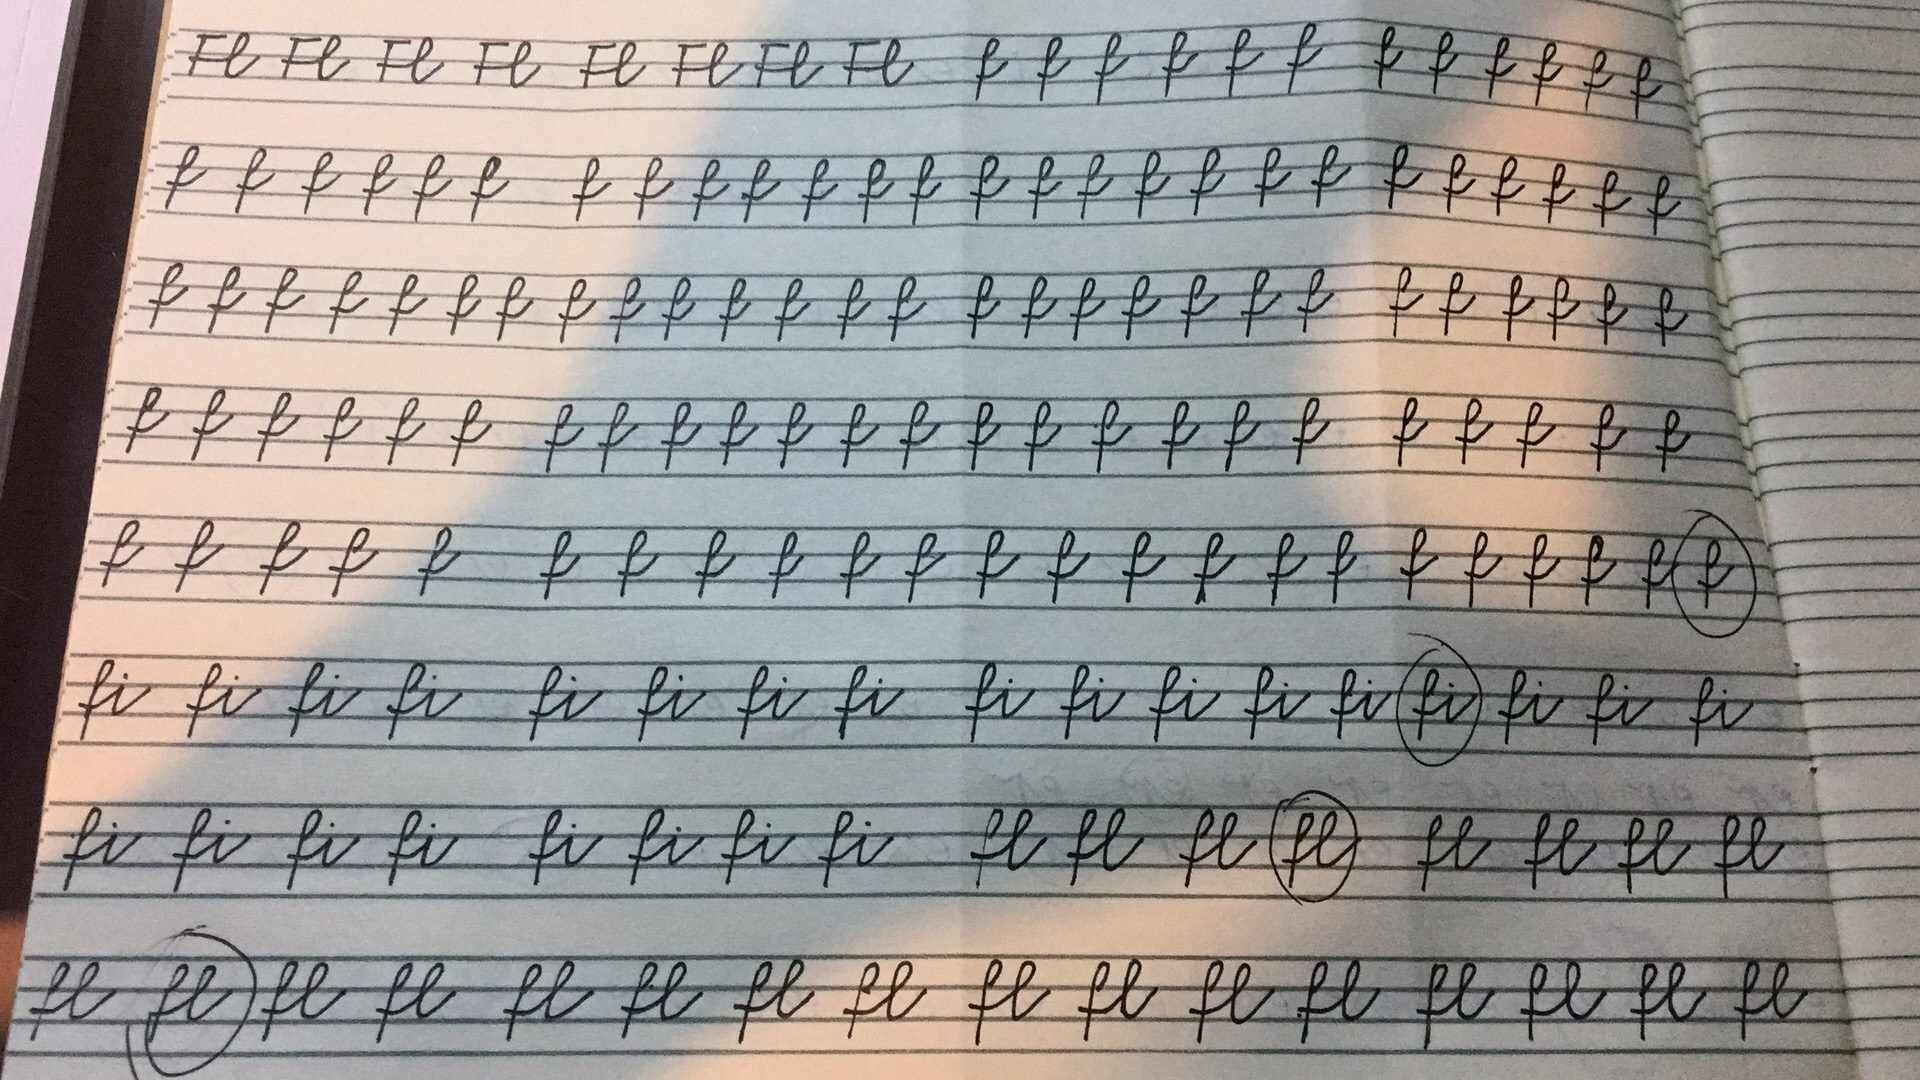 Fl Fl Fl Fl Fl Fl Fl Fl f f f f f f f f f f f f
f f f f f f f f f f f f f f f f f f f f f f f f f f
f f f f f f f f f f f f f f f f f f f f f f f f f f f
f f f f f f f f f f f f f f f f f f f f f f f f
f f f f f f f f f f f f f f f f f f f f f f f
fi fi fi fi fi fi fi fi fi fi fi fi fi fi fi fi fi
fi fi fi fi fi fi fi fi fl fl fl fl fl fl fl fl
fl fl fl fl fl fl fl fl fl fl fl fl fl fl fl fl